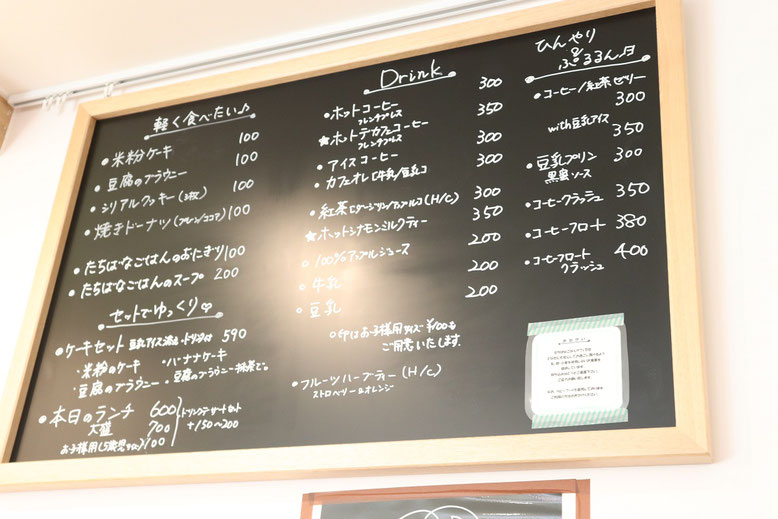 軽く食べたい♪
・米粉ケーキ 100
・豆腐のブラウニー 100
・シリアルクッキー(3枚) 100
・焼きドーナツ(プレーン/ココア) 100
・たちばなごはんのおにぎり 100
・たちばなごはんのスープ 200
セットでゆっくり♡
・ケーキセット 590
・米粉のケーキ ・バナナケーキ
・豆腐のブラウニー
・本日のランチ 600
大盛 700
お子様用 100
ドリンクデザートセット
+150〜200
Drink
・ホットコーヒー 300
フレンチプレス
★ホットデカフェコーヒー 350
フレンチプレス
・アイスコーヒー 300
・カフェオレ[牛乳/豆乳] 300
・紅茶[ダージリン/アップル](H/C) 300
★ホットシナモンミルクティー 350
○100%アップルジュース 200
○牛乳 200
○豆乳 200
○印はお子様用サイズ ¥100も
ご用意いたします
・フルーツハーブティー(H/C)
ストロベリー&オレンジ
ひんやり
&
ぷるるん月
・コーヒー/紅茶ゼリー
300
with豆乳アイス
350
・豆乳プリン 300
黒蜜ソース
・コーヒークラッシュ 350
・コーヒーフロート 380
・コーヒーフロート 400
クラッシュ